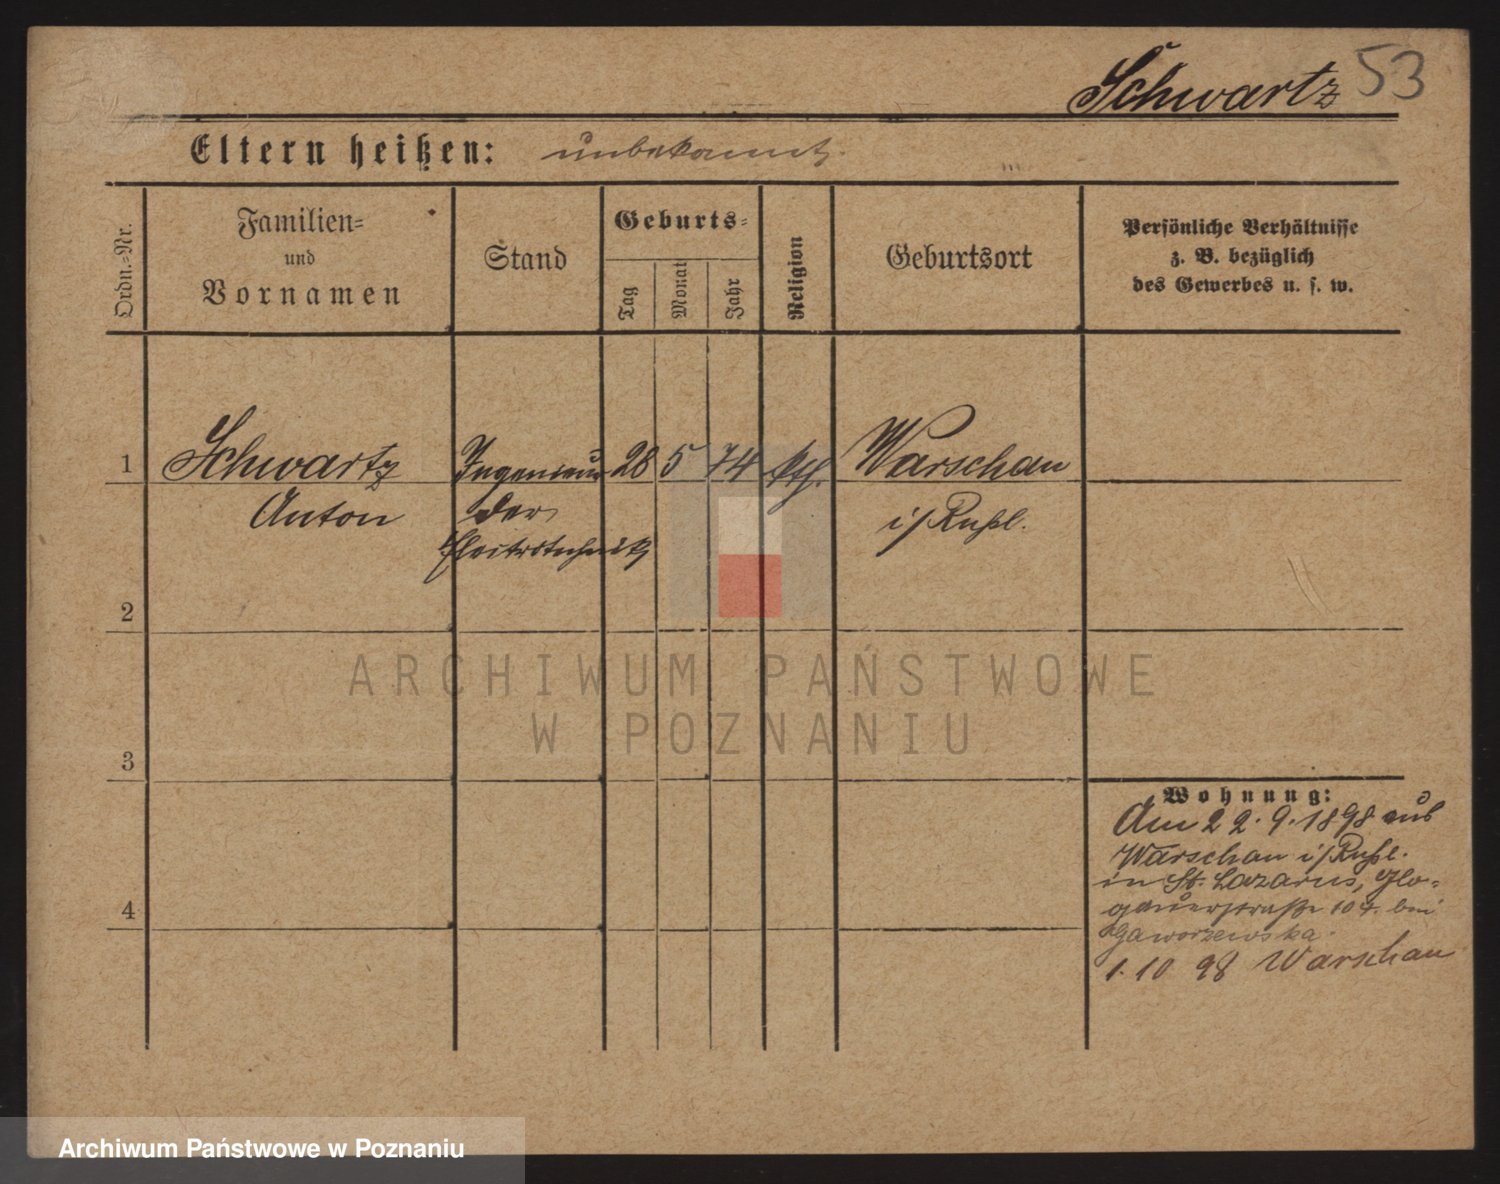 Schwartz 53
Eltern heißen: unbekannt.
Ordn.=Nr.
Familien=
und
Vornamen
Stand
Geburts=
Tag
Monat
Jahr
Religion
Geburtsort
Persönliche Verhältnisse
z. B. bezüglich
des Gewerbes u. s. w.
1 Schwartz Ingenieur 28 5 74 kth. Warschau
Anton der i/Rußl.
Electrotechnik
2
3
4
ARCHIWUM PAŃSTWOWE
W POZNANIU
Wohnung:
Am 22.9.1898 aus
Warschau i/Rußl.
in St. Lazarus, Glo=
gauerstraße 104. bei
Gaworzewska.
1.10 98 Warschau
Archiwum Państwowe w Poznaniu